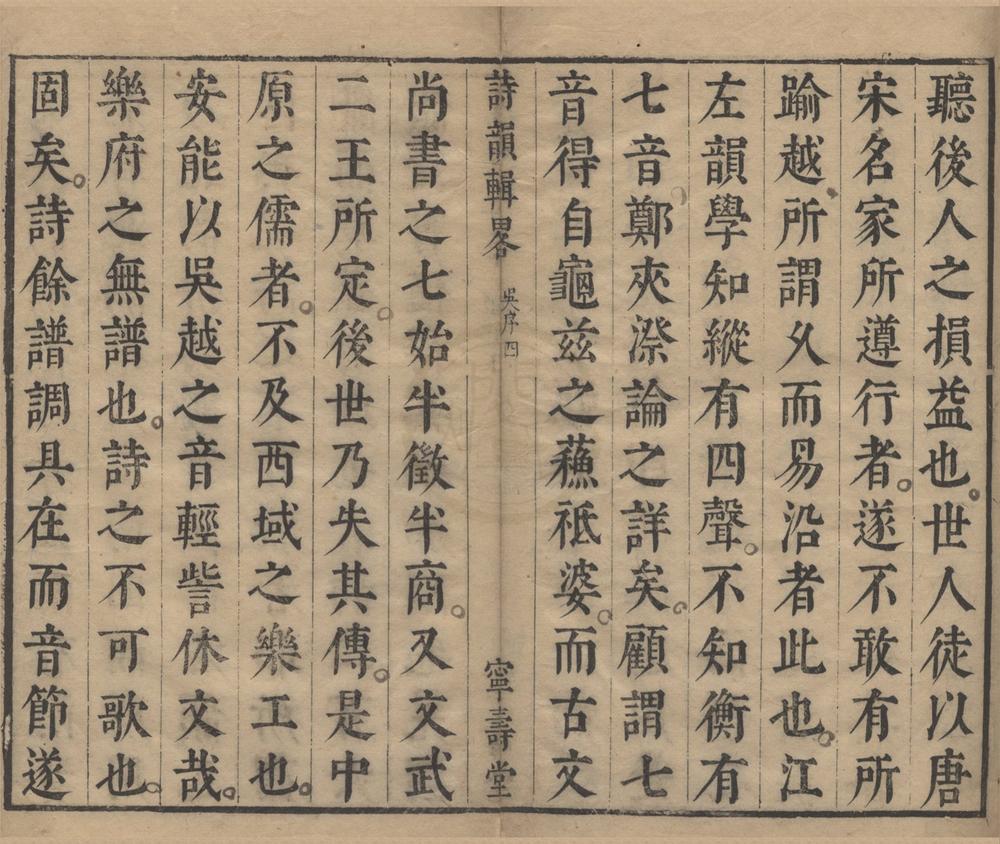 聽後人之損益也。世人徒以唐
宋名家所遵行者。遂不敢有所
踰越所謂乆而易沿者此也。江
左韻學知縱有四聲。不知衡有
七音。鄭夾漈論之詳矣。顧謂七
音得自龜茲之蘓祗婆。而古文
詩韻輯畧 吳序四 寧壽堂
尚書之七始半徵半商。又文武
二王所定。後世乃失其傳。是中
原之儒者。不及西域之樂工也。
安能以吳越之音輕訾休文哉。
樂府之無譜也。詩之不可歌也。
固矣。詩餘譜調具在而音節遂